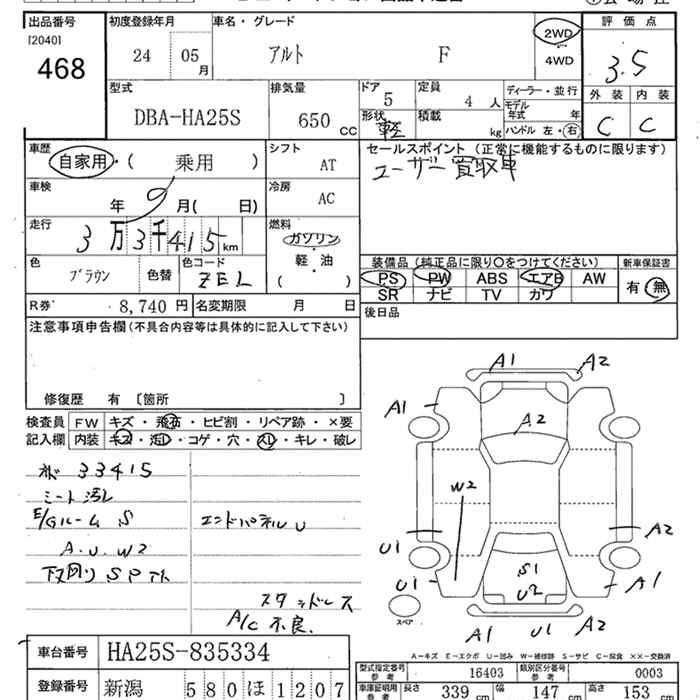 出品番号 初度登録年月 車名・グレード 評価点
[2040]
468 24 05月 アルト F 2WD・4WD 3.5
型式 排気量 ドア 定員 ディーラー・並行 外装 内装
DBA-HA25S 650cc 5 4人 モデル年式 年 C C
形状 軽 積載 kg ハンドル 左・右
車歴 シフト セールスポイント(正常に機能するものに限ります)
自家用・( 乗用 ) AT ユーザー買取車
車検 冷房
年 9月( 日) AC
走行 燃料
3万3千415km ガソリン・軽・油 ( )
装備品(純正品に限り○をつけてください) 新車保証書
色 色替 色コード PS PW ABS エアB AW 有 無
ブラウン ZEL SR ナビ TV カワ
R券 8,740円 名変期限 月 日 後日品
注意事項申告欄(不具合内容等は具体的に記入して下さい)
修復歴 有 〔箇所 〕
検査員記入欄 FW キズ・飛石・ヒビ割・リペア跡・×要
内装 キズ・汚レ・コゲ・穴・スレ・キレ・破レ
33415
シート汚レ
E/Gルーム S
エンドパネル U
A.U.W2
下廻り SPアト
スタッドレス
A/C 不良.
A1 A2
A1 A2
W2
U1 A2
S1
U2
U1 A1
スペア
A1 U1 A2
A-キズ E-エクボ U-凹み W-補修跡 S-サビ C-腐食 ××-交換済
車台番号 HA25S-835334
型式指定番号 参考 16403 類別区分番号 参考 0003
登録番号 新潟 580ほ1207
車庫証明用 参考 長さ 339cm 幅 147cm 高さ 153cm